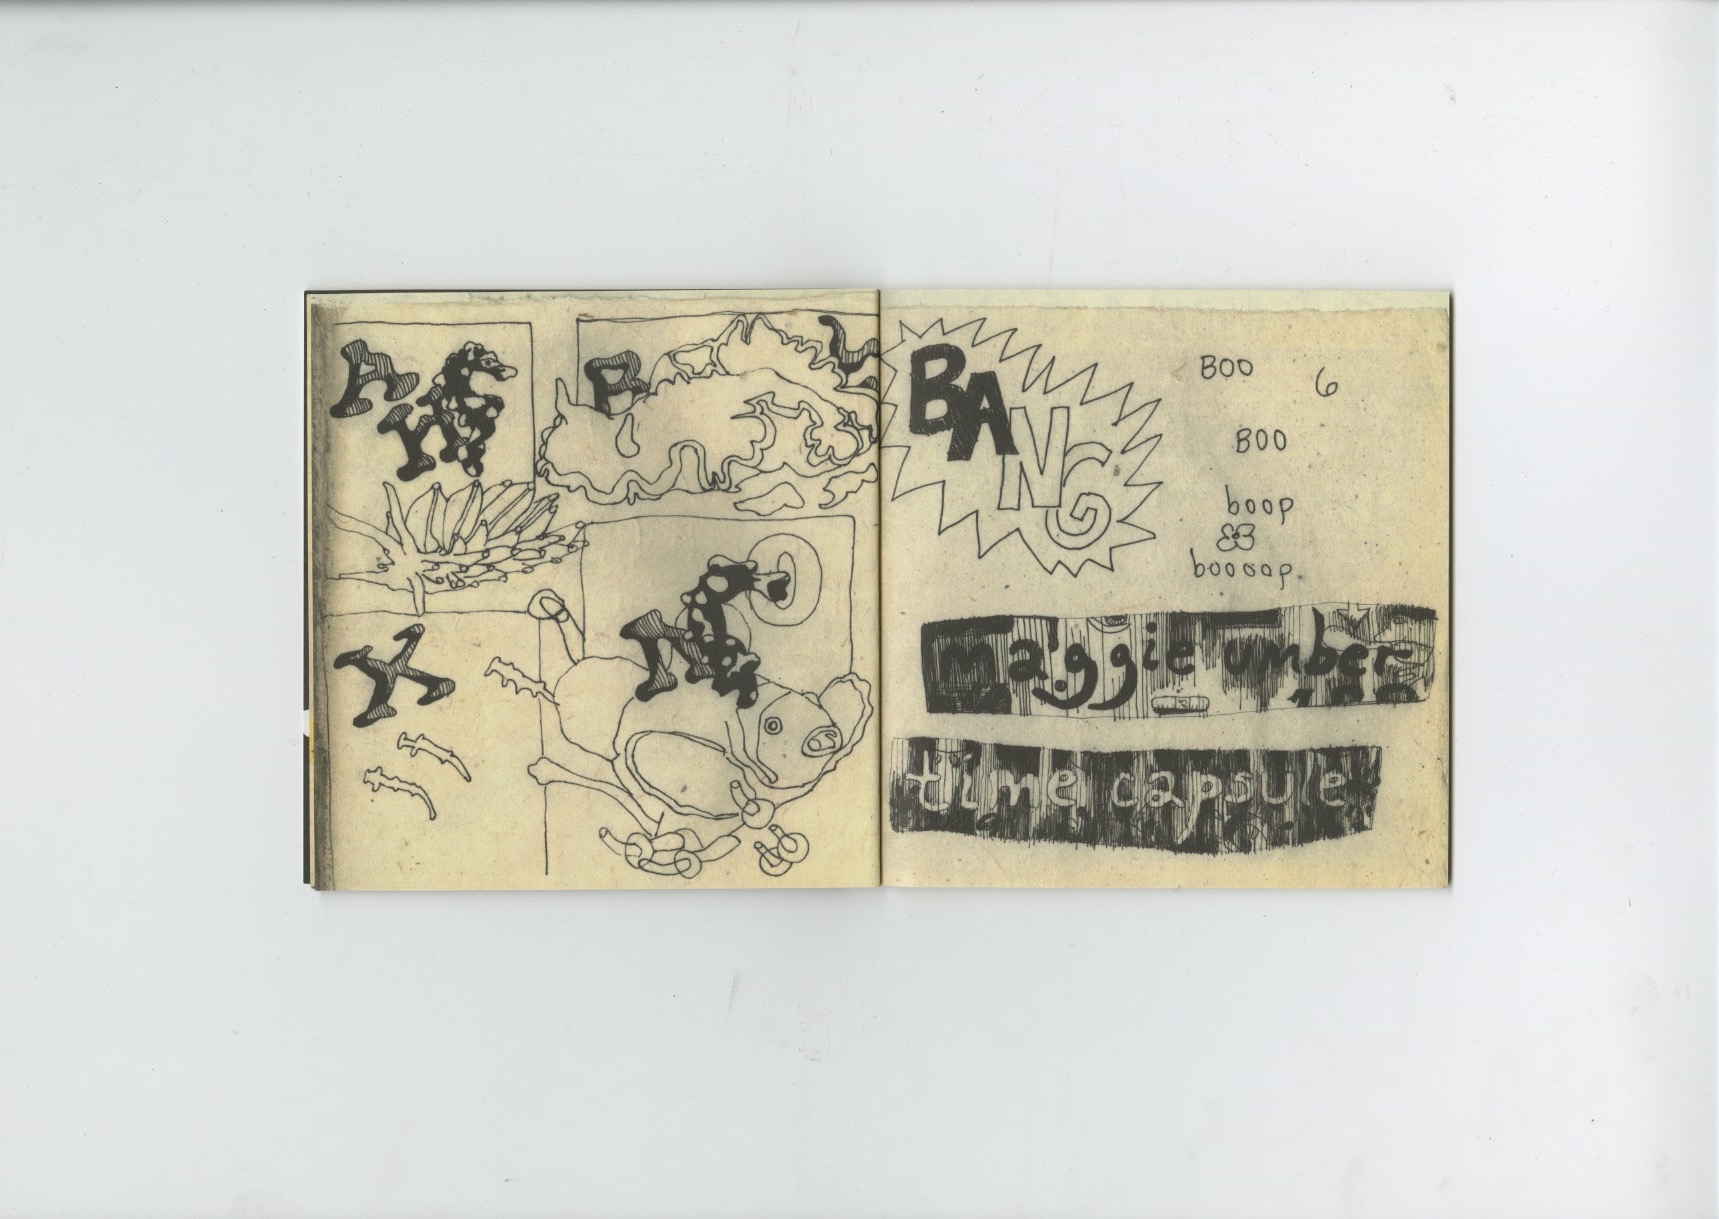 A
W
B
X
N
BANG
BOO
6
BOO
boop
boooop
maggie umber
time capsule